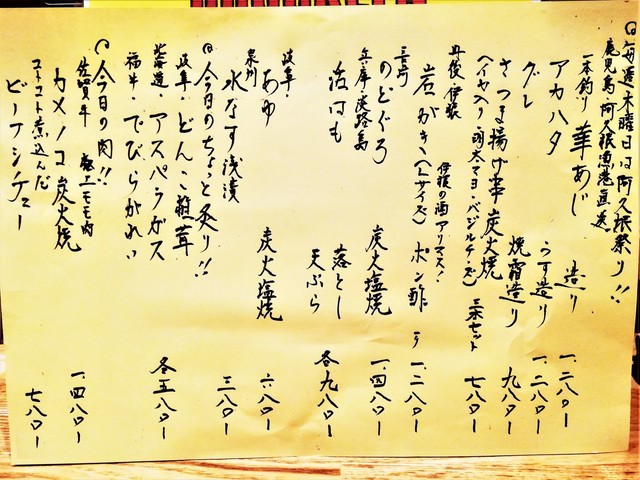 毎週木曜日は阿久根祭り!!
鹿児島・阿久根漁港直送
一本釣り 華あじ 造り 一、二八〇ー
アカハタ うす造り 一、二八〇ー
グレ 焼霜造り 九八〇ー
さつま揚げ 炭火焼
(ヘイヤ入り・明太マヨ・バジルチーズ) 三本セット 七八〇ー
丹後 伊根 伊根の酒アリマス!
岩がき(Lサイズ) ポン酢 一、二八〇ー
長崎
のどぐろ 炭火塩焼 一、四八〇ー
兵庫・淡路島
活はも 落とし 天ぷら 各九八〇ー
岐阜・
あゆ 炭火塩焼 六八〇ー
泉州
水なす浅漬 三八〇ー
今日のちょっと炙り!!
岐阜・どんこ椎茸
北海道・アスパラガス 各五八〇ー
福井・でびらがれい
今日の肉!!
佐賀牛 極上モモ肉
カメノコ 炭火焼 一、四八〇ー
コトコト煮込んだ
ビーフシチュー 七八〇ー